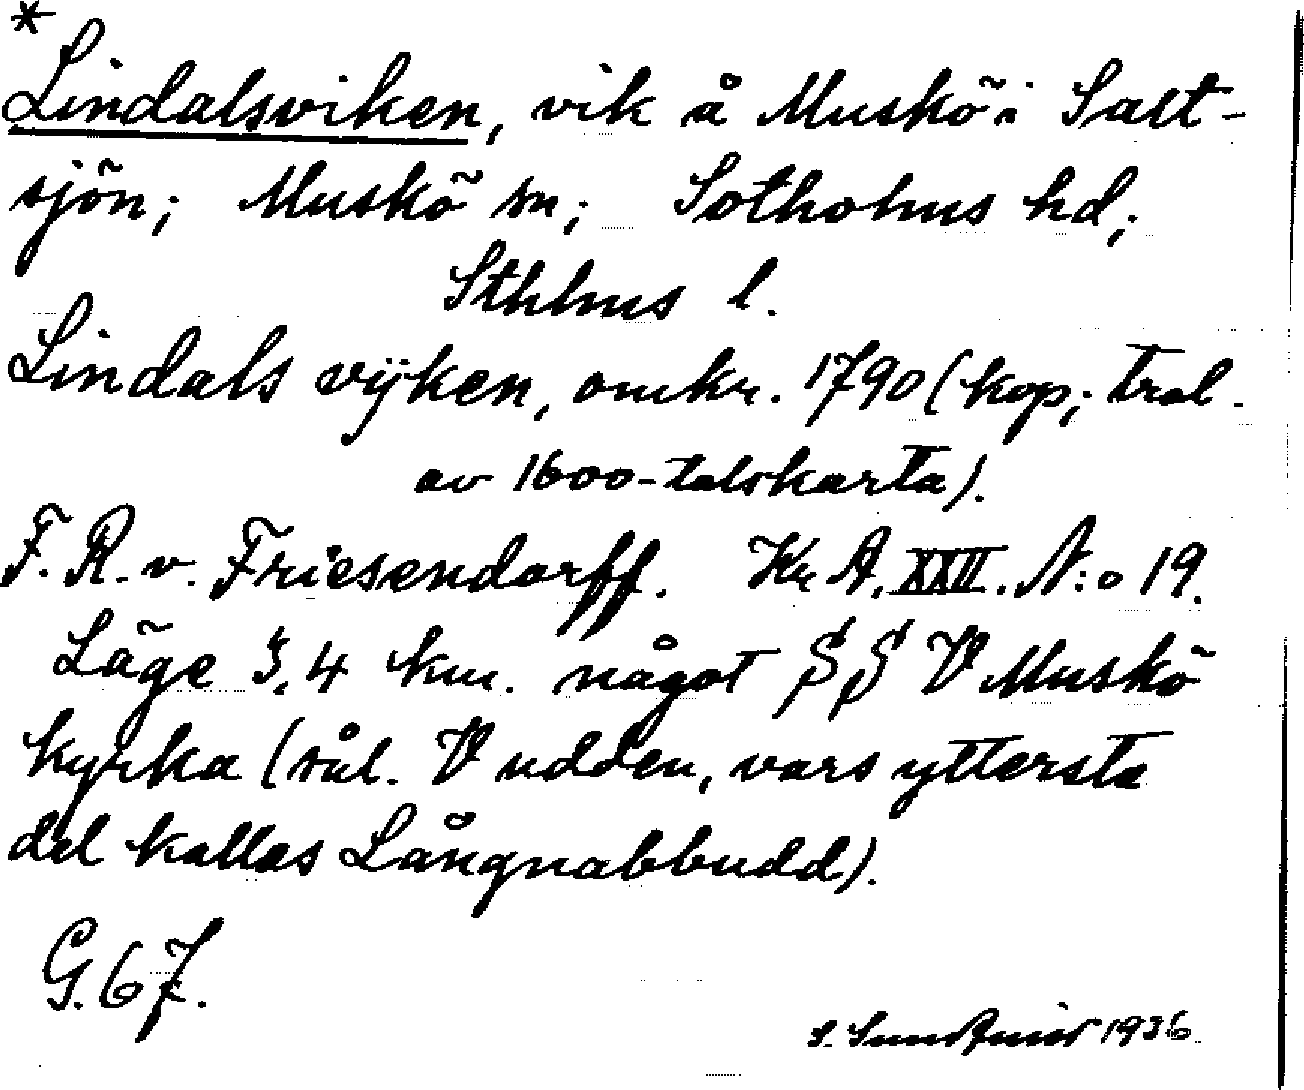 *
Lindalsviken, vik å Muskö i Salt-
sjön; Muskö sn; Sotholms hd;
Sthlms l.
Lindals vÿken, omkr. 1790 (kop; trol.
av 1600-talskarta).
F. R. v. Friesendorff. Kr A. XXII. N:o 19.
Läge 3,4 km. något S S V Muskö
kyrka (sål. V udden, vars yttersta
del kallas Långnabbudd).
G. 67.
S. 1936